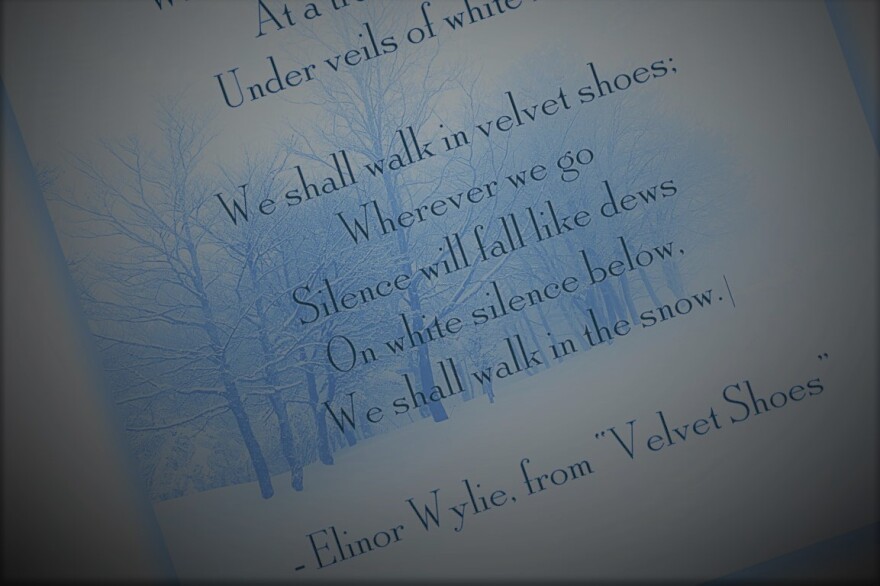 At a
Under veils of white
We shall walk in velvet shoes;
Wherever we go
Silence will fall like dews
On white silence below.
We shall walk in the snow.
-Elinor Wylie, from "Velvet Shoes"